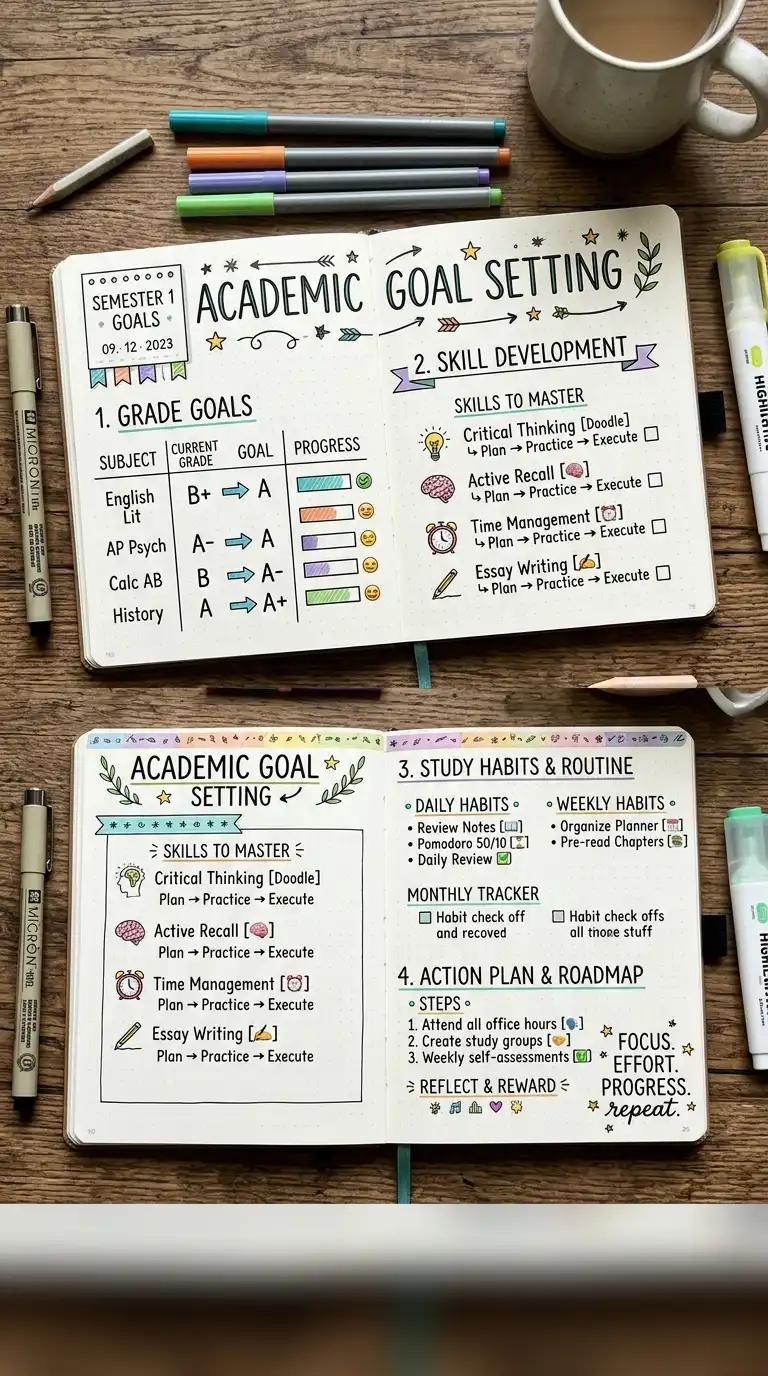 SEMESTER 1
GOALS
09.·12·2023
ACADEMIC GOAL SETTING
1. GRADE GOALS
SUBJECT CURRENT GRADE GOAL PROGRESS
English Lit B+ → A
AP Psych A- → A
Calc AB B → A-
History A → A+
2. SKILL DEVELOPMENT
SKILLS TO MASTER
Critical Thinking [Doodle]
↳ Plan → Practice → Execute
Active Recall [🧠]
↳ Plan → Practice → Execute
Time Management [⏰]
↳ Plan → Practice → Execute
Essay Writing [✍️]
↳ Plan → Practice → Execute
MICRON
HIGHLIGHTER
ACADEMIC GOAL
SETTING
SKILLS TO MASTER
Critical Thinking [Doodle]
Plan → Practice → Execute
Active Recall [🧠]
Plan → Practice → Execute
Time Management [⏰]
Plan → Practice → Execute
Essay Writing [✍️]
Plan → Practice → Execute
3. STUDY HABITS & ROUTINE
DAILY HABITS
• Review Notes [📖]
• Pomodoro 50/10 [⏳]
• Daily Review ✅
WEEKLY HABITS
• Organize Planner [📅]
• Pre-read Chapters [📚]
MONTHLY TRACKER
Habit check off
and recoved
Habit check offs
all those stuff
4. ACTION PLAN & ROADMAP
STEPS
1. Attend all office hours [🗣️]
2. Create study groups [🤝]
3. Weekly self-assessments [✅]
REFLECT & REWARD
FOCUS.
EFFORT.
PROGRESS.
repeat.
MICRON